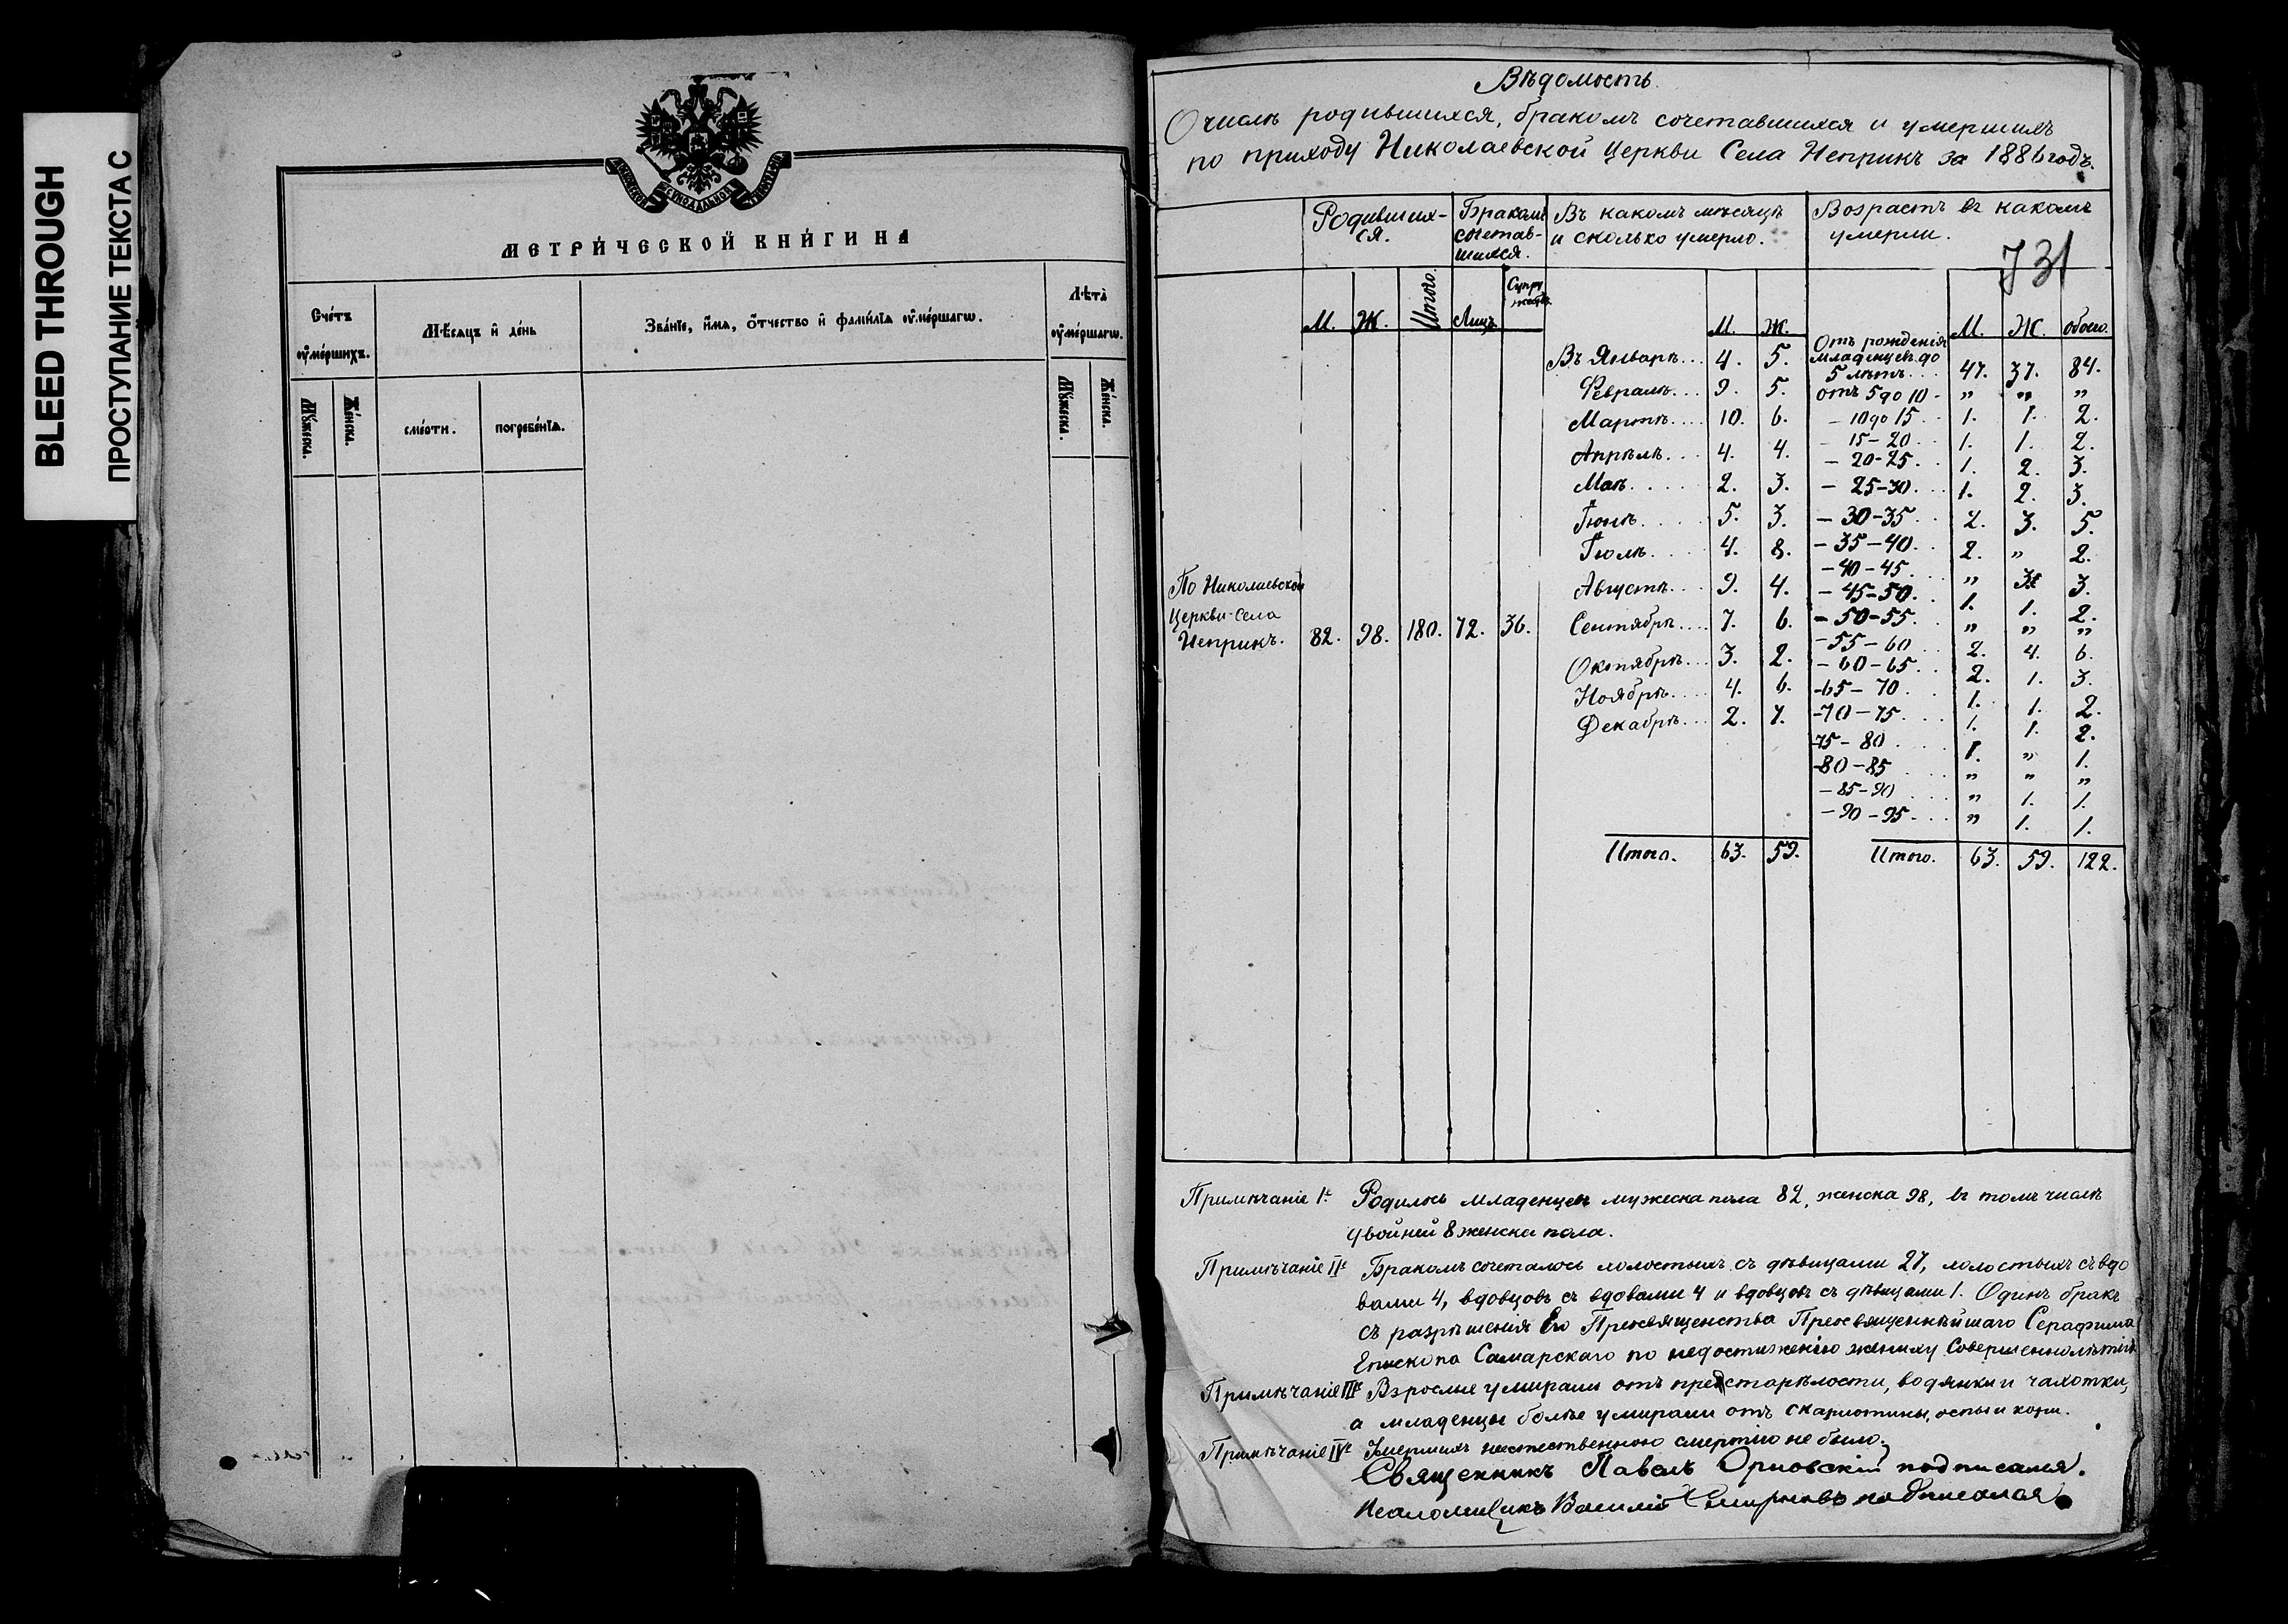 BLEED THROUGH
ПРОСТУПАНИЕ ТЕКСТА С
МЕТРИ́ЧЕСКОЙ КНИ́ГИ НА
Сче́тъ ᲂу҆ме́ршихъ.
Мѣ́сяцъ и҆ де́нь
Зва́нїе, и҆́мя, ѻ҆́тчество и҆ фами́лїя ᲂу҆ме́ршагѡ.
Лѣ́та ᲂу҆ме́ршагѡ.
Му́жеска.
Же́нска.
сме́рти.
погребе́нїя.
Му́жеска.
Же́нска.
Вѣдомость.
О числѣ родившихся, бракомъ сочетавшихся и умершихъ
по приходу Николаевской Церкви Села Неприкъ за 1886 годъ.
731
Родивших-
ся.
Бракомъ
сочетав-
шихся.
Въ какомъ мѣсяцѣ
и сколько умерло.
Возрастъ въ какомъ
умерли.
М. Ж. Итого. Лицъ. Супружествъ М. Ж. М. Ж. обоего.
По Николаевской
Церкви Села
Неприкъ. 82. 98. 180. 72. 36.
Въ Январѣ... 4. 5.
Февралѣ... 9. 5.
Мартѣ.... 10. 6.
Апрѣлѣ... 4. 4.
Маѣ..... 2. 3.
Іюнѣ.... 5. 3.
Іюлѣ.... 4. 8.
Августѣ.... 9. 4.
Сентябрѣ.... 7. 6.
Октябрѣ... 3. 2.
Ноябрѣ.... 4. 6.
Декабрѣ... 2. 7.
Итого. 63. 59.
Отъ рожденія
младенцевъ до
5 лѣтъ... 47. 37. 84.
отъ 5 до 10 - „ „ „
— 10 до 15. 1. 1. 2.
— 15 - 20... 1. 1. 2.
— 20 - 25... 1. 2. 3.
— 25 - 30... 1. 2. 3.
— 30 - 35... 2. 3. 5.
— 35 - 40... 2. „ 2.
— 40 - 45... „ 3. 3.
— 45 - 50... 1. 1. 2.
— 50 - 55... „ „ „
— 55 - 60... 2. 4. 6.
— 60 - 65... 2. 1. 3.
- 65 - 70... 1. 1. 2.
- 70 - 75... 1. 1. 2.
75 - 80... 1. „ 1.
- 80 - 85... „ „ „
— 85 - 90... „ 1. 1.
— 90 - 95... „ 1. 1.
Итого. 63. 59. 122.
Примѣчаніе I.е Родилось младенцевъ мужеска пола 82, женска 98, въ томъ числѣ
двойней 8 женска пола.
Примѣчаніе II.е Бракомъ сочеталось холостыхъ съ дѣвицами 27, холостыхъ съ вдо
вами 4, вдовцовъ съ вдовами 4 и вдовцовъ съ дѣвицами 1. Одинъ бракъ
съ разрѣшенія Его Преосвященства Преосвященнѣйшаго Серафима
Епископа Самарскаго по недостиженію жениху Совершеннолѣтія
Примѣчаніе III.е Взрослые умирали отъ престарѣлости, водянки и чахотки,
а младенцы болѣе умирали отъ скарлотины, оспы и кори.
Примѣчаніе IV.е Умершихъ неестественною смертію не было.
Священникъ Павелъ Орловскій подписался.
Псаломщикъ Василій Смирновъ подписался.